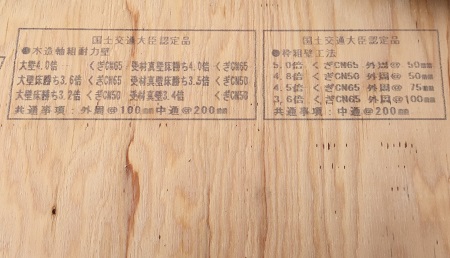 国土交通大臣認定品
●木造軸組耐力壁
大壁4.0倍 くぎCN65 受材真壁床勝ち4.0倍 くぎCN65
大壁床勝ち3.6倍 くぎCN50 受材真壁床勝ち3.5倍 くぎCN50
大壁床勝ち3.2倍 くぎCN50 受材真壁3.4倍 くぎCN50
共通事項:外周@100mm中通@200mm
国土交通大臣認定品
●枠組壁工法
5.0倍 くぎCN65 外周@ 50mm
4.8倍 くぎCN50 外周@ 50mm
4.5倍 くぎCN65 外周@ 75mm
3.6倍 くぎCN65 外周@100mm
共通事項:中通@200mm